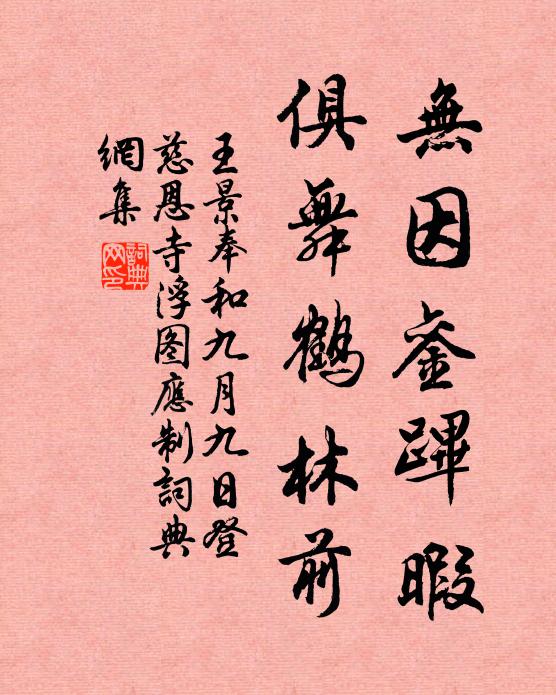 無因銮蹕暇
俱舞鶴林前
王景奉和九月九日登
慈恩寺浮图應制詞典
網集
詞典
网印